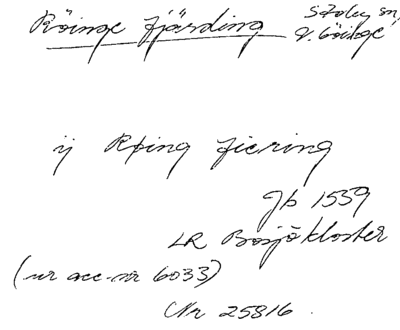 Röinge fjärding Stoby sn,
V. Göinge
ij Røing fiering
Jb 1539
LR Bosjökloster
(ur acc-nr 6033)
Nr 25816.